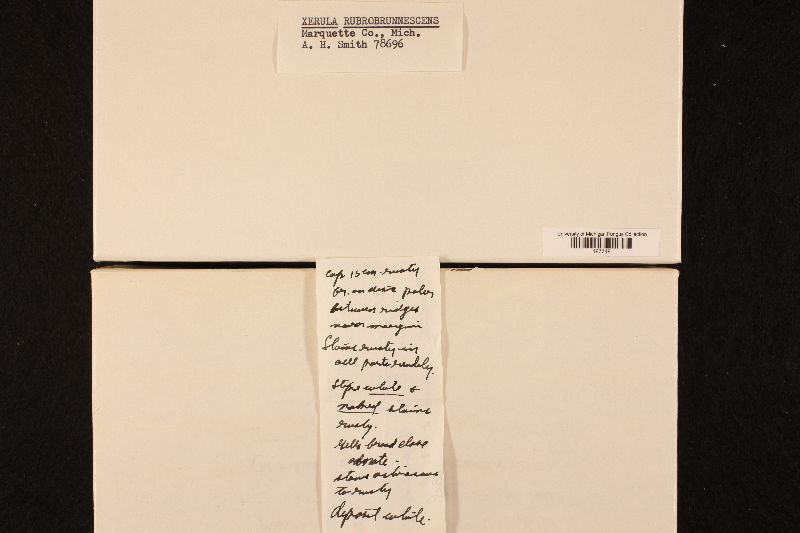 XERULA RUBROBRUNNESCENS
Marquette Co., Mich.
A. H. Smith 78696
University of Michigan Fungus Collection
cap 15 cm rusty
br. on disc paler
between ridges
near margin
Stains rusty in
all parts readily.
Stipe white &
naked stains
rusty.
Gills broad close
adnate -
stains
to rusty
deposit white.